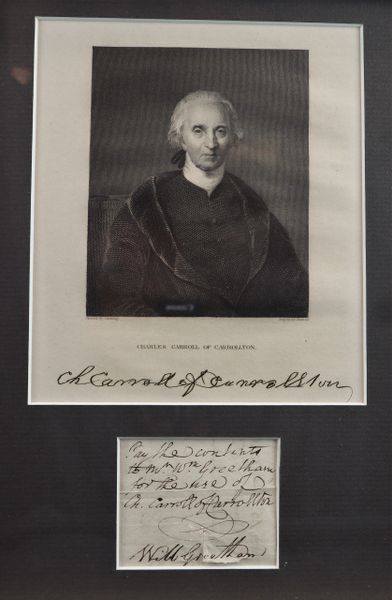 CHARLES CARROLL OF CARROLLTON.
Ch Carroll of Carrollton
Pay the contents
to Mr. Wm Greetham
for the use of
Ch. Carroll of Carrollton
Will Greetham